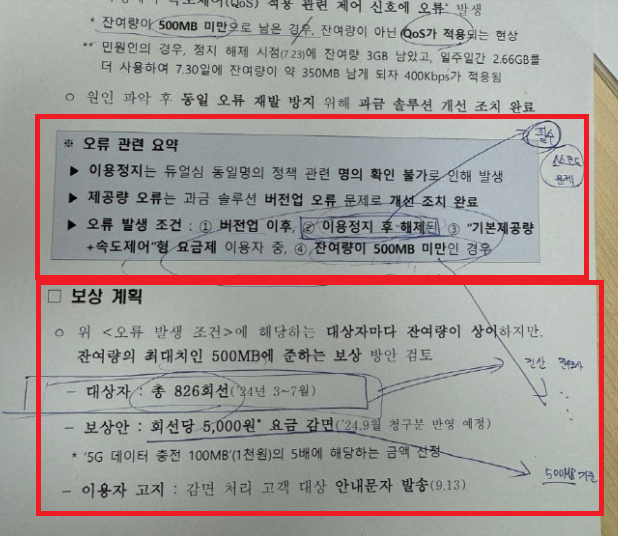 (QoS) 적용 관련 제어 신호에 오류* 발생
* 잔여량이 500MB 미만으로 남은 경우, 잔여량이 아닌 QoS가 적용되는 현상
** 민원인의 경우, 정지 해제 시점(7.23)에 잔여량 3GB 남았고, 일주일간 2.66GB를
더 사용하여 7.30일에 잔여량이 약 350MB 남게 되자 400Kbps가 적용됨
○ 원인 파악 후 동일 오류 재발 방지 위해 과금 솔루션 개선 조치 완료
필수
※ 오류 관련 요약
소스코드
문제
▶ 이용정지는 듀얼심 동일명의 정책 관련 명의 확인 불가로 인해 발생
▶ 제공량 오류는 과금 솔루션 버전업 오류 문제로 개선 조치 완료
▶ 오류 발생 조건 : ① 버전업 이후, ② 이용정지 후 해제된 ③ "기본제공량
+속도제어"형 요금제 이용자 중, ④ 잔여량이 500MB 미만인 경우
□ 보상 계획
○ 위 <오류 발생 조건>에 해당하는 대상자마다 잔여량이 상이하지만,
잔여량의 최대치인 500MB에 준하는 보상 방안 검토
전산
- 대상자 : 총 826회선('24년 3~7월)
- 보상안 : 회선당 5,000원* 요금 감면('24.9월 청구분 반영 예정)
* '5G 데이터 충전 100MB'(1천원)의 5배에 해당하는 금액 산정
500MB 기준
- 이용자 고지 : 감면 처리 고객 대상 안내문자 발송(9.13)